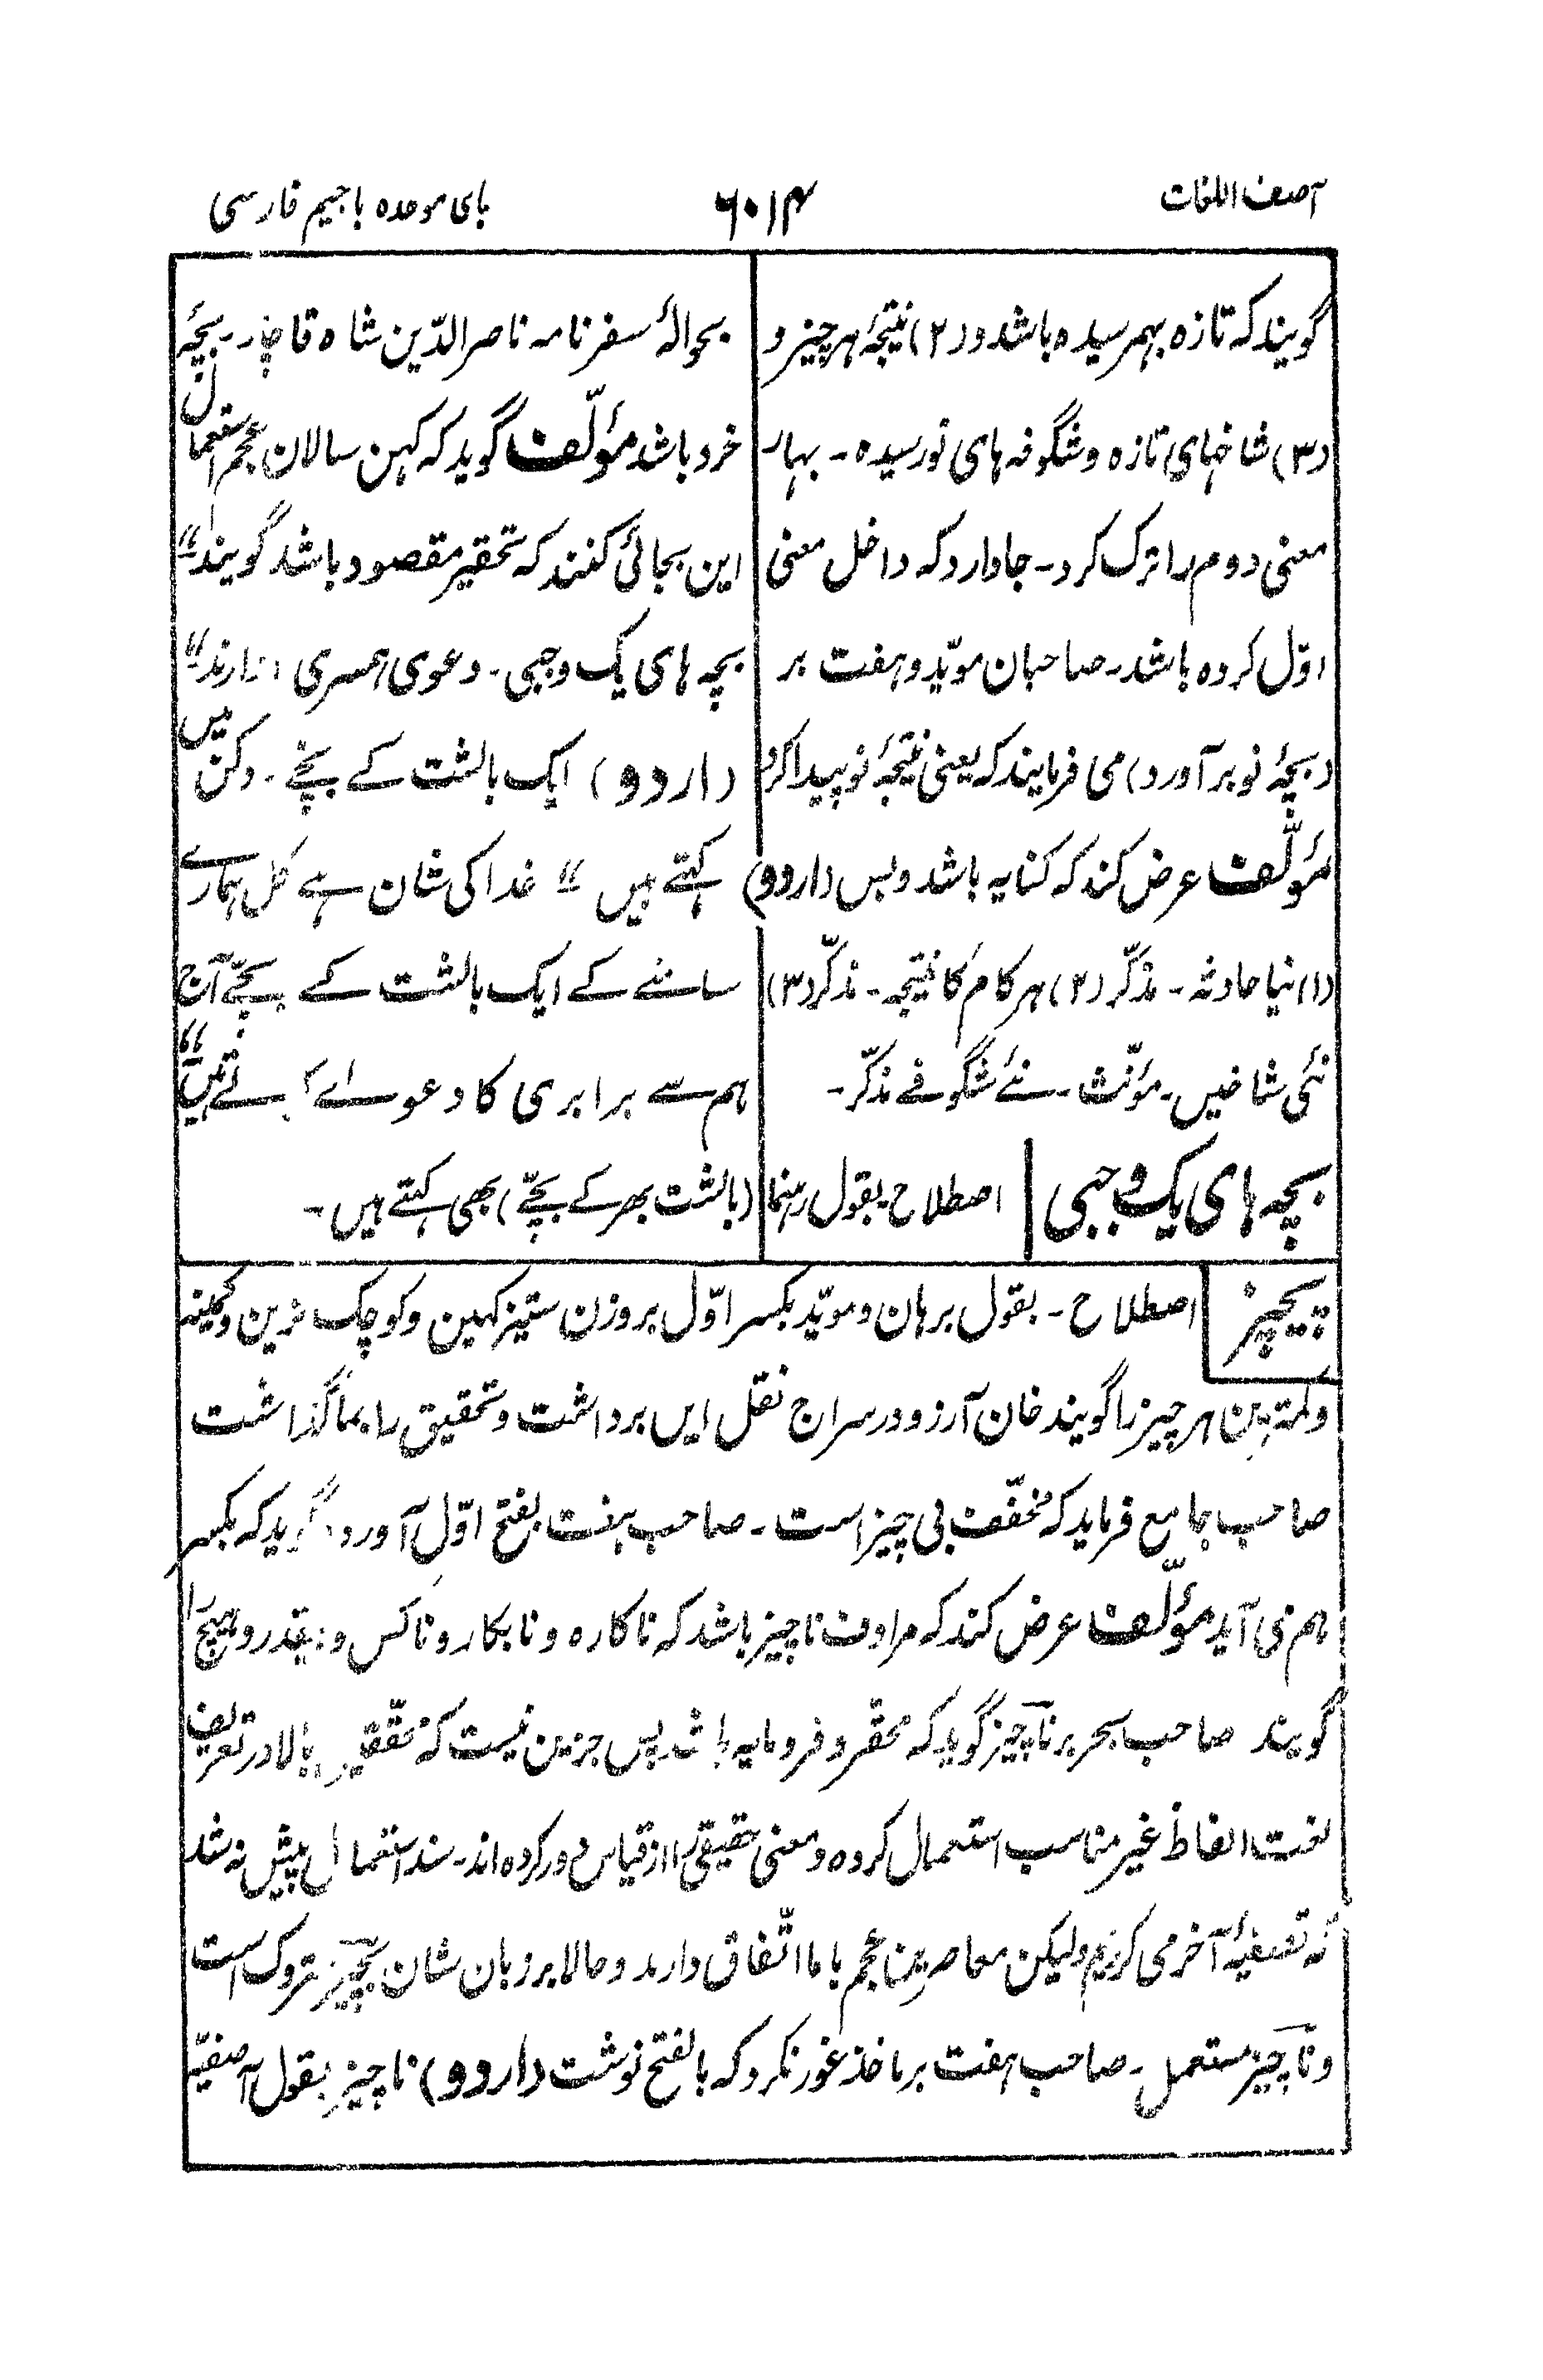 آصف اللغات
۶۰۱۴
بای موحده با جیم فارسی
گویند که تازه بهم رسیده باشد و (۲) نتیجهٔ هر چیز و
(۳) شاخهای تازه و شگوفه های نو رسیده ۔ بهار
معنی دوم را ترک کرد ۔ جا دارد که داخل معنی
اوّل کرده باشد ۔ صاحبان مویّد و هفت بر
(بچهٔ نو بر آورد) می فرمایند که یعنی نتیجهٔ نو پیدا کرد
مؤلّف عرض کند که کنایه باشد و بس (اردو)
(۱) نیا حادثہ ۔ مذکّر (۲) ہر کام کا نتیجہ ۔ مذکّر (۳)
نئی شاخیں ۔ مؤنّث ۔ نئے شگوفے مذکّر ۔
بچه های یک وجبی | اصطلاح ۔ بقول رهنما
بحوالهٔ سفرنامه ناصر الدّین شاه قاچار ۔ بچهٔ
خرد باشد مؤلّف گوید که کهن سالان عجم استعمال
این بجائی کنند که تحقیر مقصود باشد گویند "
بچه های یک وجبی ۔ دعوی همسری دارند "
(اردو) ایک بالشت کے بچّے ۔ دکن میں
کہتے ہیں " خدا کی شان ہے کل ہمارے
سامنے کے ایک بالشت کے بچّے آج
ہم سے برابری کا دعوے کرتے ہیں "
(بالشت بھر کے بچّے) بھی کہتے ہیں ۔
بیچیز | اصطلاح ۔ بقول برهان و مویّد بکسر اوّل بروزن ستیز کهین و کوچک ترین و کمینه
و کمترین هر چیز را گویند خان آرزو در سراج نقل ایں برداشت و تحقیق را بما گذاشت
صاحب جامع فرماید که مخفّف بی چیز است ۔ صاحب هفت بفتح اوّل آورده گوید که بکسر
هم می آید مؤلّف عرض کند که مرادف ناچیز باشد که ناکاره و نابکار و ناکس و بیقدر و هیچ را
گویند صاحب بحر بر ناچیز گوید که محقر و فرومایه باشد پس جزین نیست که محقّقین بالا در تعریف
لغت الفاظ غیر مناسب استعمال کرده و معنی حقیقی را از قیاس دور کرده اند ۔ سند استعمال پیش نه شد
که تصفیهٔ آخر می کردیم ولیکن معاصرین عجم با ما اتّفاق دارند و حالا بر زبان شان بچیز متروک است
و ناچیز مستعمل ۔ صاحب هفت بر ماخذ غور نکرد که بالفتح نوشت (اردو) ناچیز بقول آصفیّه